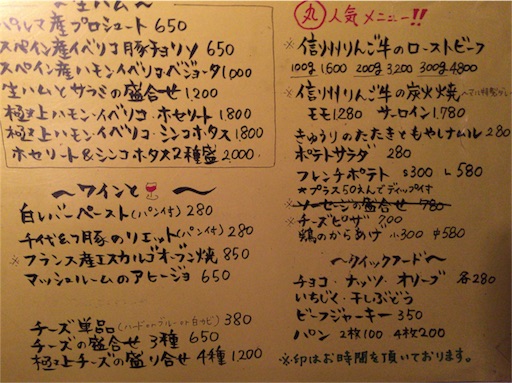 〜生ハム〜
パルマ産プロシュート 650
スペイン産イベリコ豚チョリソ 650
スペイン産ハモン・イベリコ・ベジョータ 1,000
生ハムとサラミの盛合せ 1,200
極上ハモン・イベリコ・ホセリート 1,800
極上ハモン・イベリコ・シンコホタス 1,800
ホセリート&シンコホタス2種盛 2,000
〜ワインと〜
白レバーペースト(パン付) 280
千代幻豚のリエット(パン付) 280
※フランス産エスカルゴオーブン焼 850
マッシュルームのアヒージョ 650
チーズ単品(ハード or ブルー or 白カビ) 380
チーズの盛合せ 3種 650
極上チーズの盛り合せ 4種 1,200
丸 人気メニュー!!
※信州りんご牛のローストビーフ
100g 1,600 200g 3,200 300g 4,800
※信州りんご牛の炭火焼
モモ 1,280 サーロイン 1,780
きゅうりのたたきともやしナムル 280
ポテトサラダ 280
フレンチポテト S300 L580
*プラス50えんでディップ付
※ソーセージの盛合せ 780
※チーズピザ 700
※鶏のからあげ 小300 中580
〜クイックフード〜
チョコ・ナッツ・オリーブ 各280
いちじく・干しぶどう
ビーフジャーキー 350
パン 2枚100 4枚200
※印はお時間を頂いております。